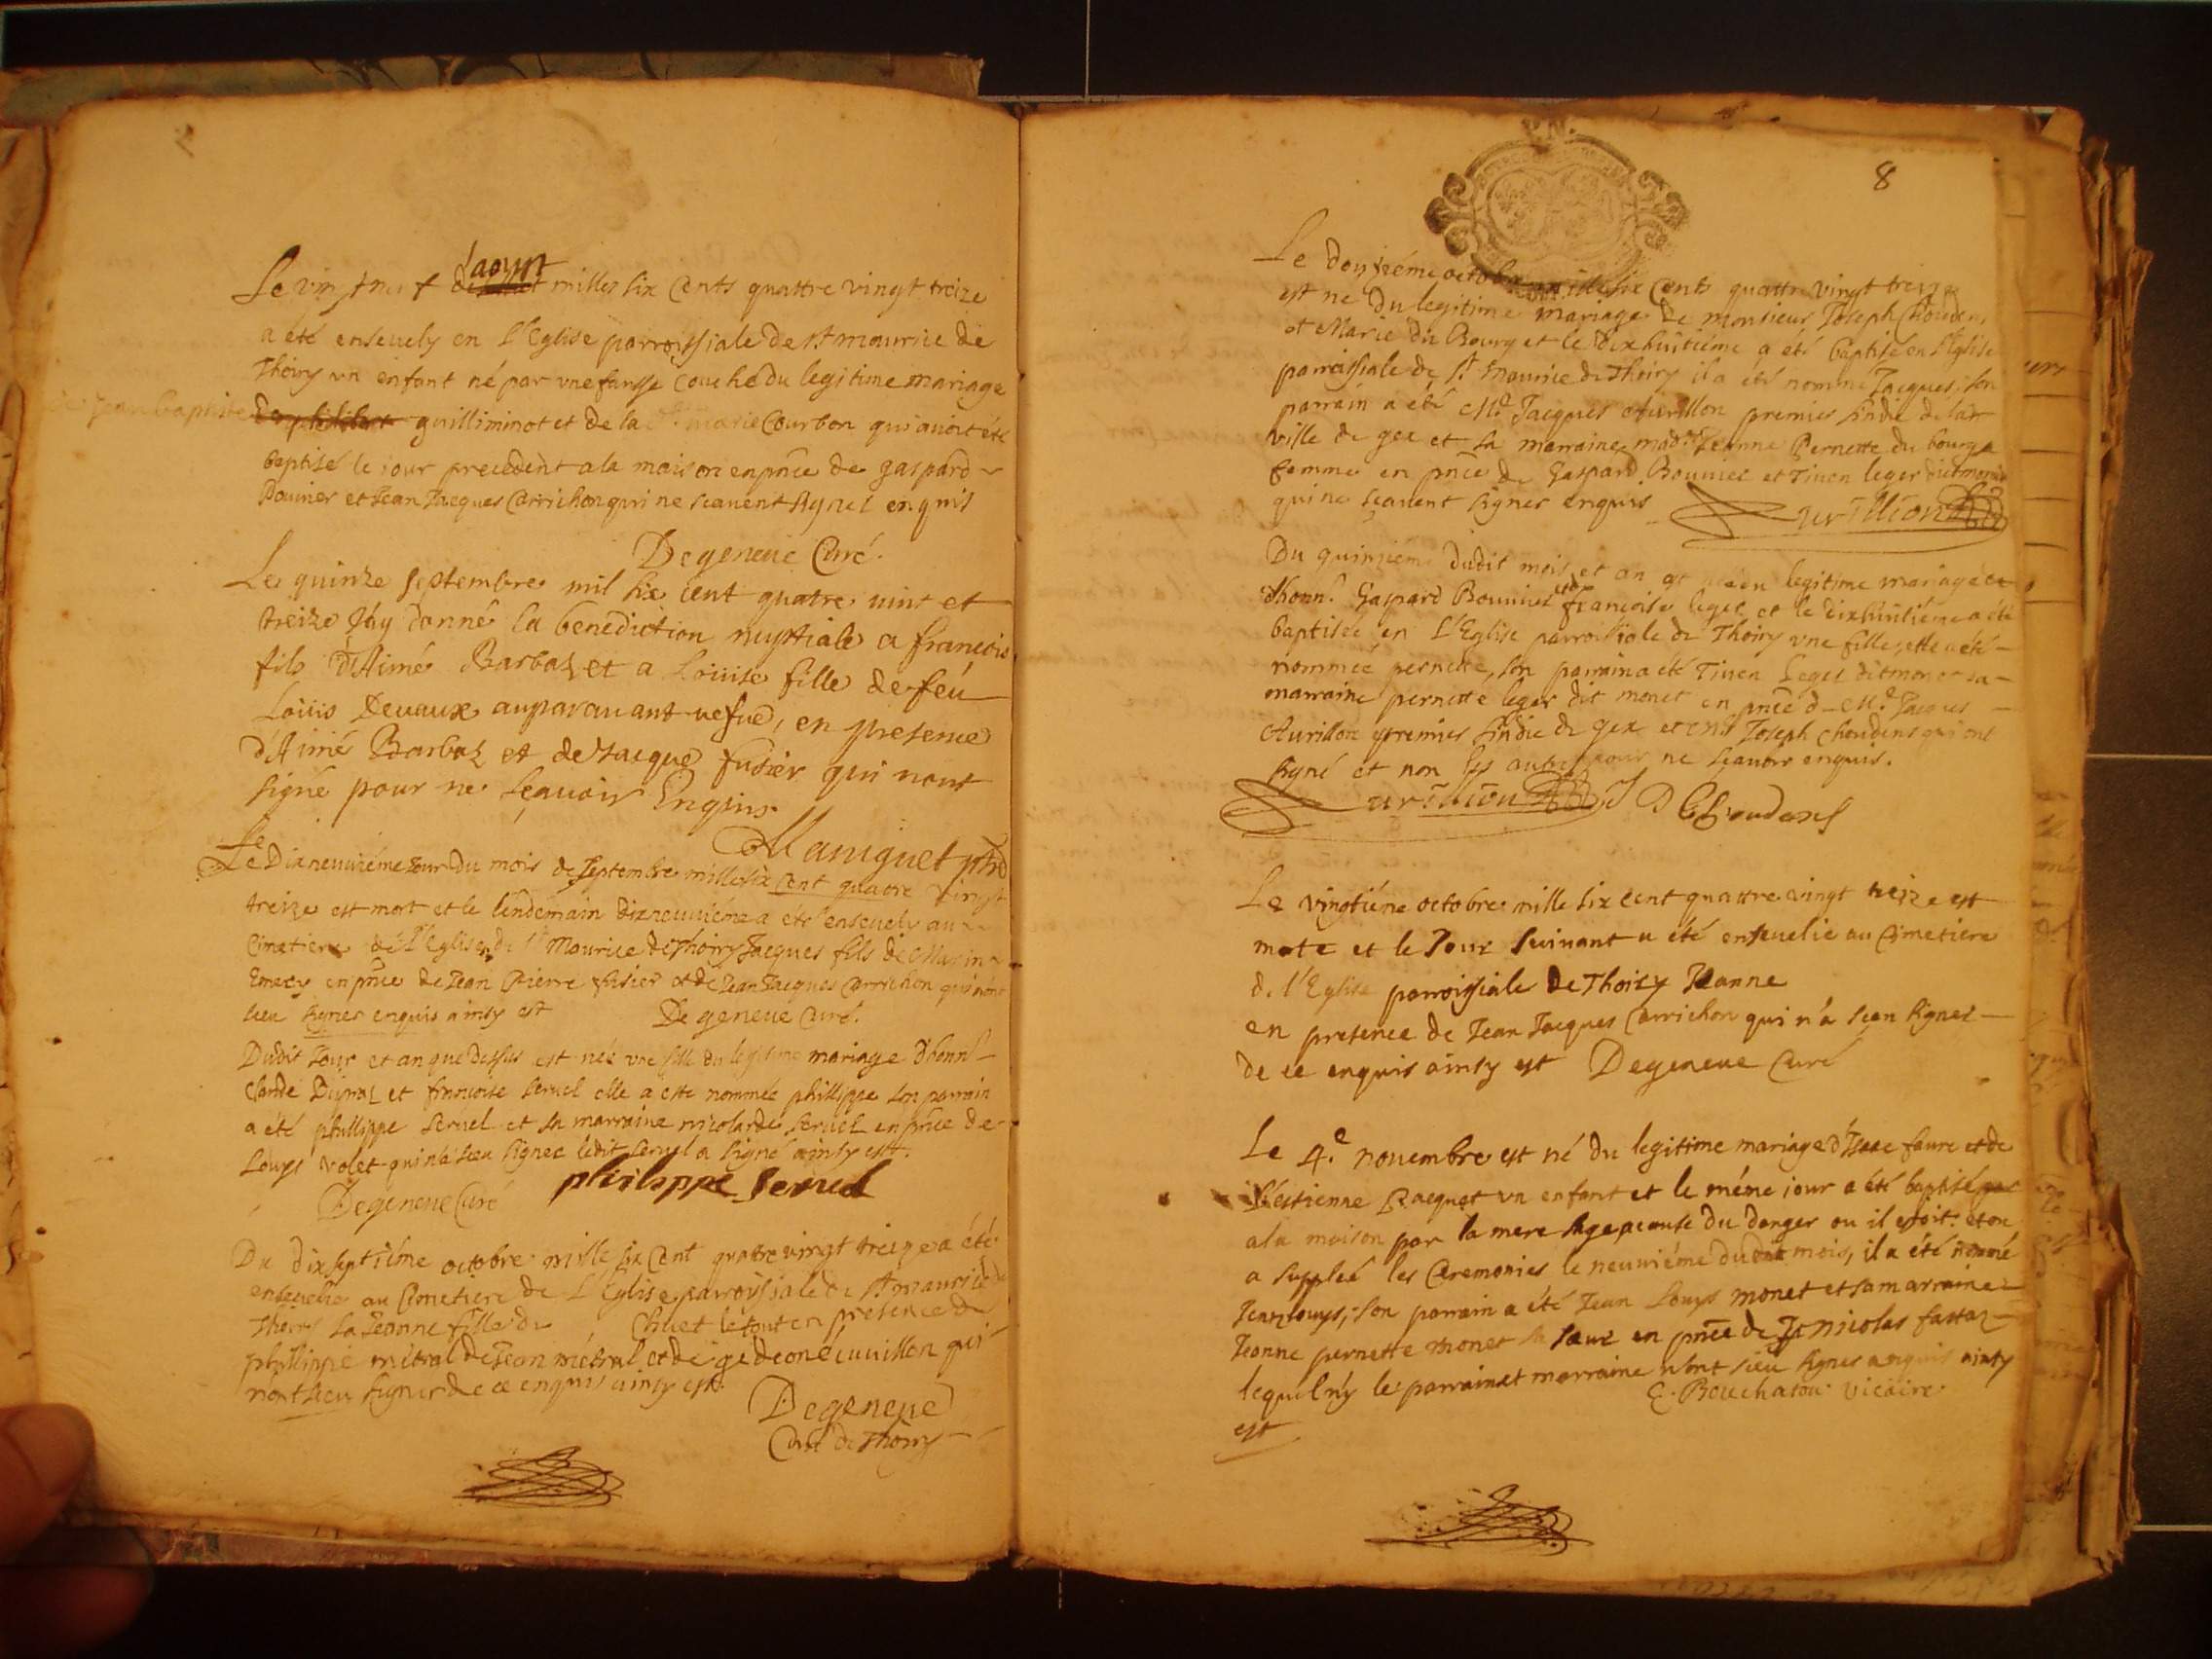 Le vingtneuf d'aoust milles six cents quattre vingt treize
a été enseuely en l'Eglise parroissiale de st maurice de
Thoiry vn enfant né par vne fausse couche du legitime mariage
jean baptiste guilliminot et de la marie Courbon qui auoit été
baptisé le iour precedent a la maison en pnce de gaspard
Bounier et Jean Jacques Carrichon qui ne scauent signer enquis
Degeneue Curé.
Le quinze septembre mil six cent quatre uint et
treize J'ay donné la benediction nuptiale a francois
fils d'Aimé Barbaz et a Loüise fille de feu
Loüis Deuaux auparauant uefue, en presence
d'Aimé Barbaz et de Jacque fusier qui n'ont
signé pour ne sçauoir Enquis.
Maniguet ptre
Le
Le Dixneuuiéme Jour du mois de septembre mille six cent quatre vingt
treize est mort et le lendemain dixneuuiéme a été enseuely au
Cimetiere de l'Eglise de st Maurice de Thoiry Jacques fils de Marin
Emery en pnce de Jean Pierre fusier et de Jean Jacques Carrichon qui n'ont
sceu signer enquis ainsy est Degeneue Curé.
Dudit Jour et an que dessus est née vne fille du legitime mariage d'honn.
Claude Duproz et francoise seruel elle a este nommée phillippe son parrain
a été phillippe seruel et sa marraine nicolarde seruel en pnce de
Louys Volet qui n'a sceu signer ledit seruel a signé ainsy est.
Degeneue Curé philippe seruel
Du dixseptiéme octobre mille six cent quatre vingt treize a été
enseuelie au Cimetiere de L'Eglise parroissiale de st maurice de
Thoiry La Jeanne fille de Chuet le tout en presence de
phillippe métral de Jean métral et de gedeon éuuillon qui
n'ont sceu signer de ce enquis ainsy est.
Degeneue
Curé de Thoiry
8
Le douziéme octobre mille six cents quattre vingt treize
est ne du legitime mariage de monsieur Joseph Choudens
et Marie du Bourg et le dixhuitiéme a eté baptisé en l'Eglise
parroissiale de st maurice de Thoiry il a été nommé Jacques, son
parrain a été Mr. Jacques Aurillon premier sindic de la
ville de gex et sa marraine mad.lle Jeanne Pernette du bourg
femme en pnce de Gaspard Bounier et Tiuen leger dit monet
qui ne sçauent signer enquis Aurillion
Du quinziéme dudit mois et an est née en legitime mariage de
d'honn. Gaspard Bounier et de francoise leger et le dixhuitiéme a été
baptisée en L'Eglise parroissiale de Thoiry vne fille, elle a été
nommée pernette, son parrain a été Tiuen Leger dit monet sa
marraine pernette leger dit monet en pnce de Mr. Jacques
Aurillon premier sindic de gex et Mr Joseph Choudens qui ont
signé et non les autres pour ne sçauoir enquis.
Aurillion J D Choudens
Le vingtiéne octobre mille six cent quattre vingt treize est
mote et le Jour suiuant a été enseuelie au Cimetiere
de l'Eglise parroissiale de Thoiry Jeanne
en presence de Jean Jacques Carrichon qui n'a sceu signer
de ce enquis ainsy est Degeneue Curé
Le 4.e nouembre est né du legitime mariage d'Isaac faure et de
l'estienne Bacquet vn enfant et le méme iour a été baptisé
a la maison par la mere sage a cause du danger ou il estoit. et on
a suppleé les Ceremonies le neuuiéme dudit mois, il a été nommé
Jean louys, son parrain a été Jean Louys monet et sa marraine
Jeanne pernette monet sa sœur en pnce de Je nicolas fattaz
lequel n'y le parrain et marraine n'ont sceu signer enquis ainsy
E. Bouchatou vicaire
est